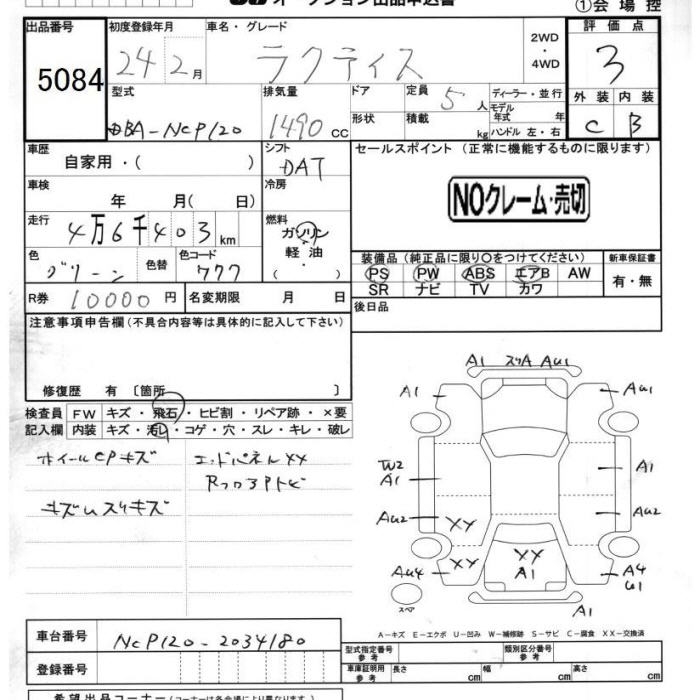 オークション出品申込書 ①会場控
出品番号 初度登録年月 車名・グレード 2WD・4WD 評価点
5084 24 2月 ラクティス 3
型式 排気量 ドア 定員 5人 ディーラー・並行 外装 内装
DBA-NCP120 1490 CC 形状 積載 kg モデル年式 年 ハンドル 左・右 C B
車歴 自家用・( ) シフト DAT セールスポイント (正常に機能するものに限ります)
車検 年 月( 日) 冷房 NOクレーム・売切
走行 4万6千403km 燃料 ガソリン・軽油・( )
色 グリーン 色替 色コード 777
装備品 (純正品に限り○をつけてください) 新車保証書
PS PW ABS エアB AW 有・無
SR ナビ TV カワ
R券 10000円 名変期限 月 日 後日品
注意事項申告欄 (不具合内容等は具体的に記入して下さい)
修復歴 有 〔箇所 〕
検査員 FW キズ・飛石・ヒビ割・リペア跡・×要
記入欄 内装 キズ・汚レ・コゲ・穴・スレ・キレ・破レ
ホイールCPキズ エンドパネルXX
Rフロアトビ
キズUスリキズ
A1 スリA AU1
A1 AU1
W2 A1 A1
AU2 XX AU2
XX XX
AU4 A1 A4 U1
スペア A1
A-キズ E-エクボ U-凹み W-補修跡 S-サビ C-腐食 XX-交換済
車台番号 NCP120-2034180
登録番号
型式指定番号 参考 類別区分番号 参考
車庫証明用 参考 長さ cm 幅 cm 高さ cm
希望出品コーナー (コーナーは各会場により異なります。)